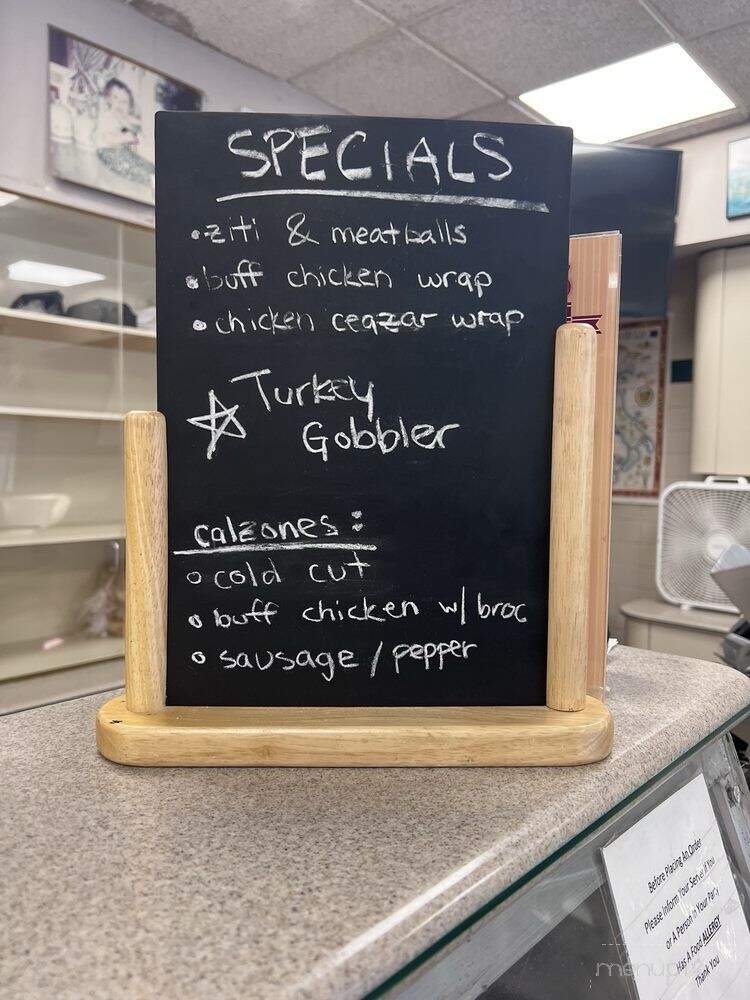 SPECIALS
• ziti & meatballs
• buff chicken wrap
• chicken ceazar wrap
☆ Turkey
Gobbler
calzones:
○ cold cut
• buff chicken w/ broc
○ sausage / pepper
Before Placing An Order
Please Inform Your Server if You
or A Person in Your Party
Has A Food ALLERGY
Thank You